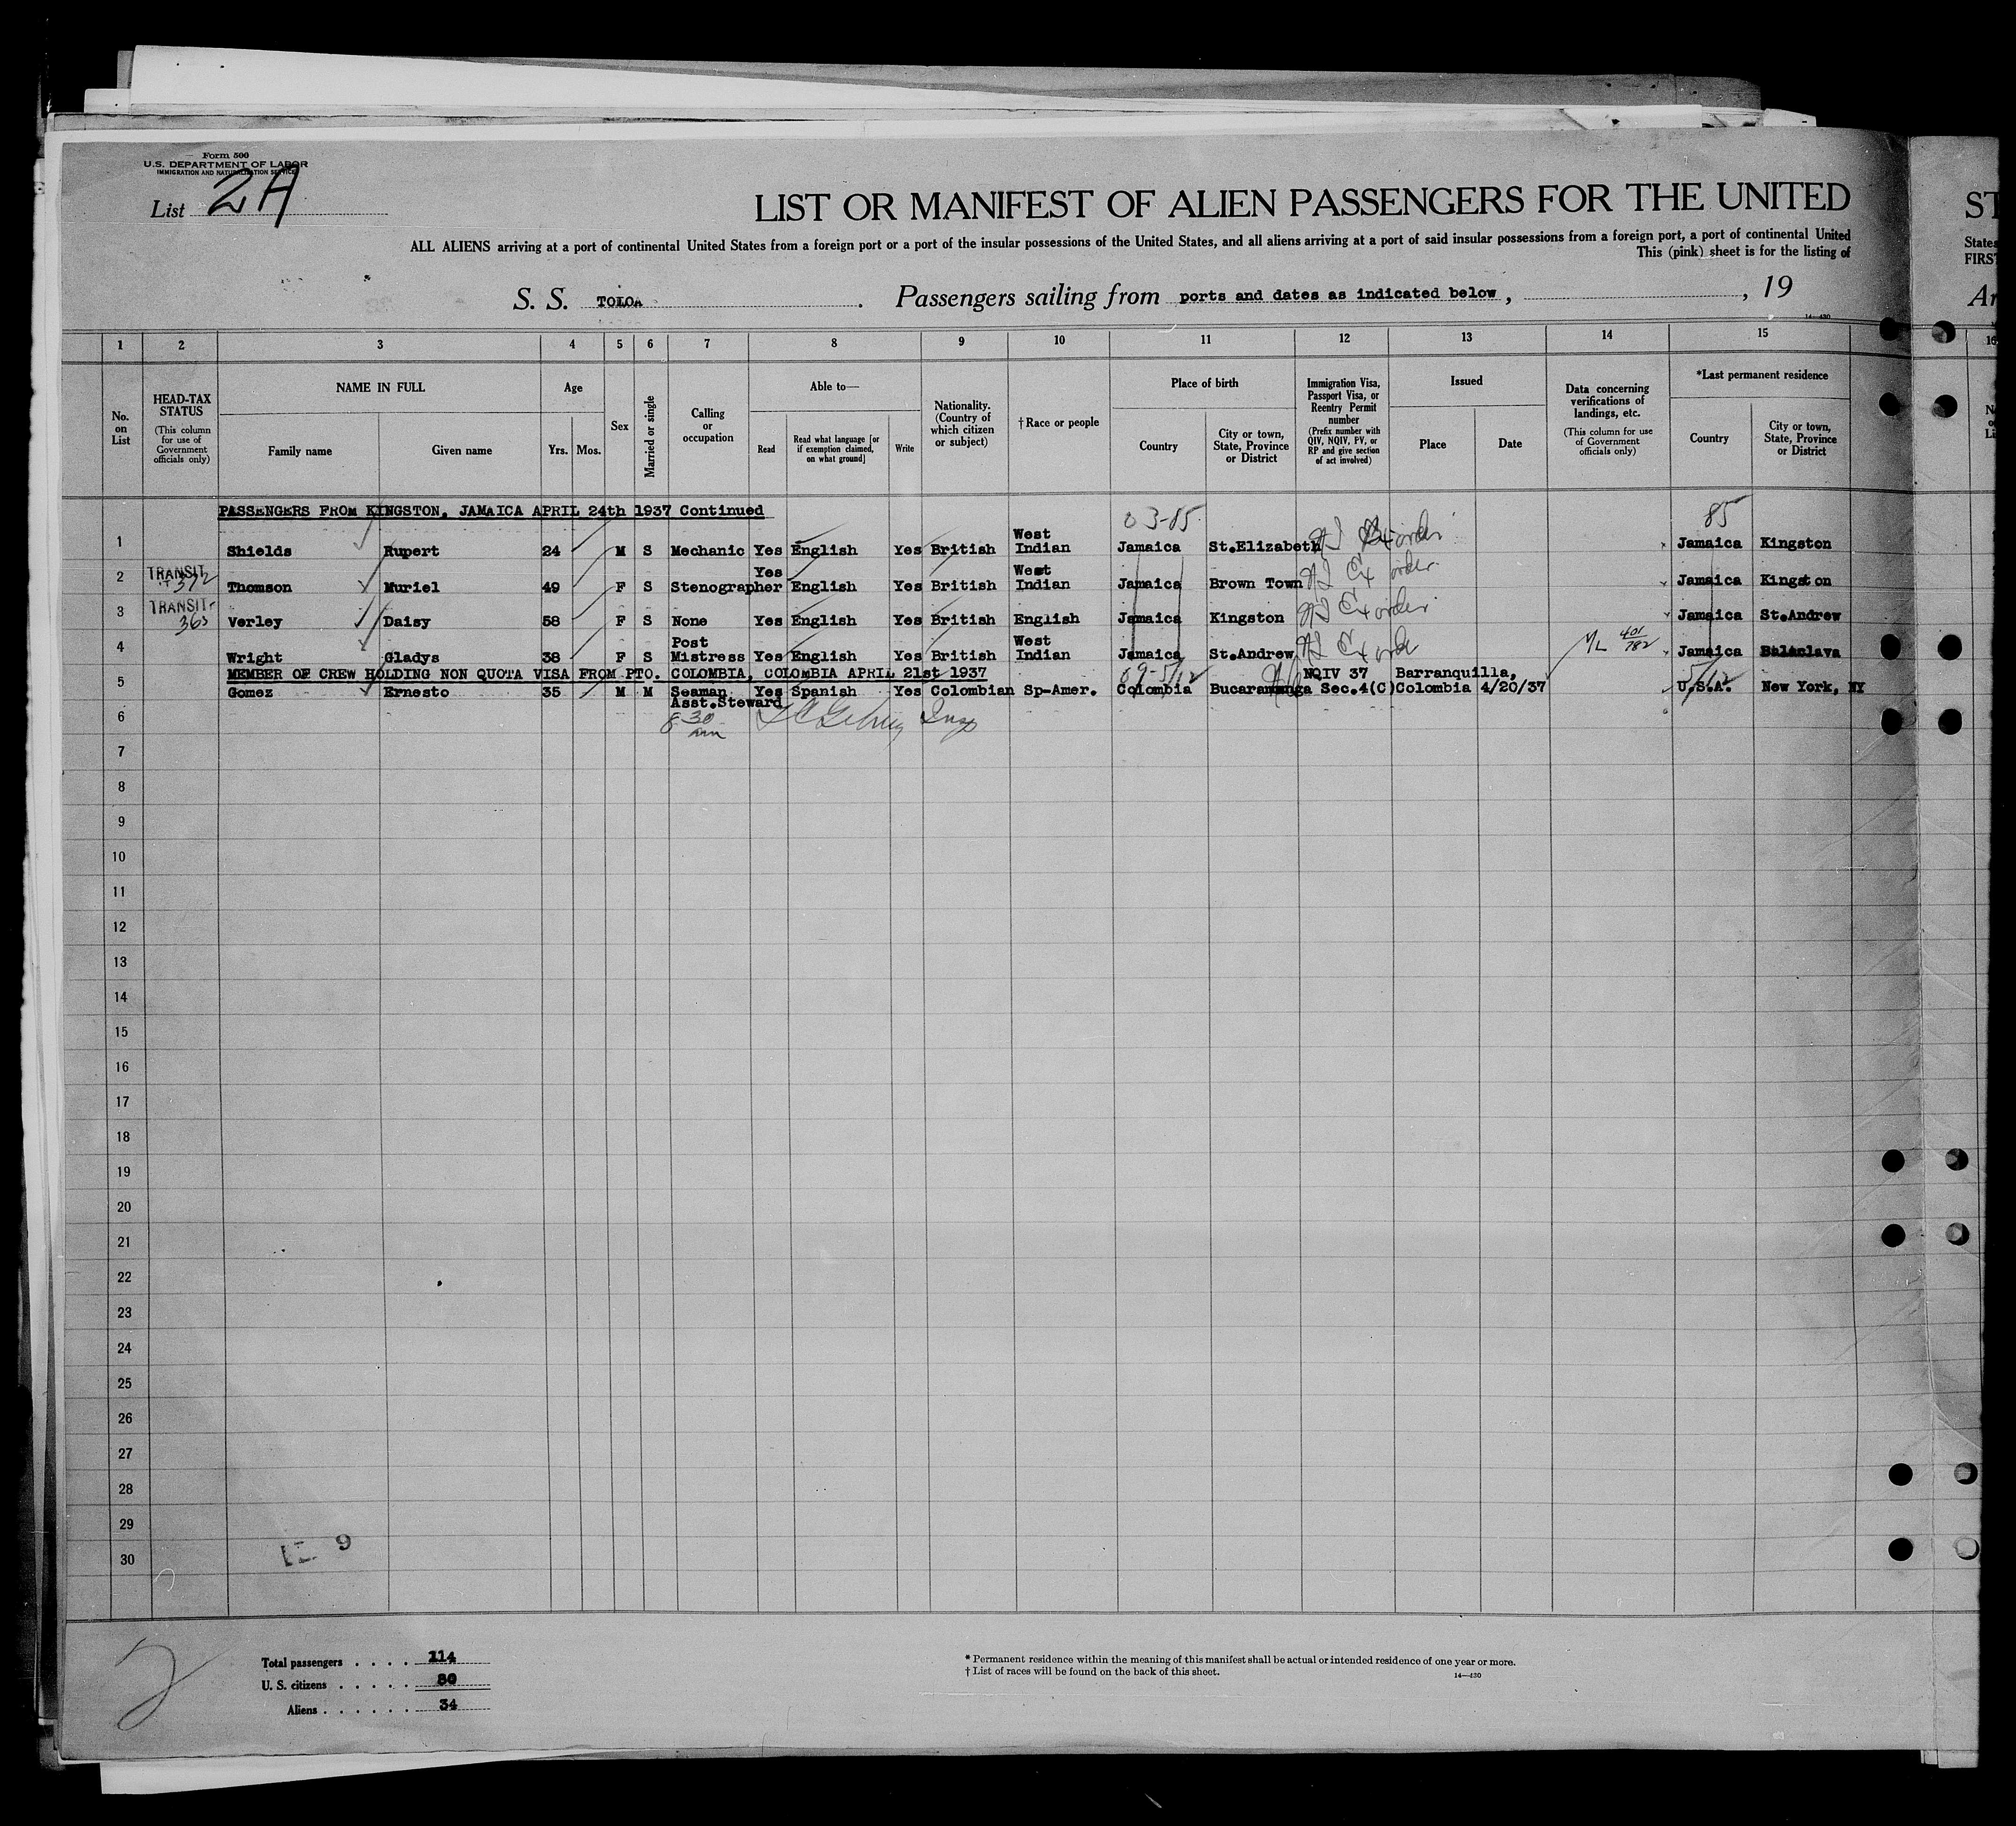 Form 500
U.S. DEPARTMENT OF LABOR
IMMIGRATION AND NATURALIZATION SERVICE
List 2A
LIST OR MANIFEST OF ALIEN PASSENGERS FOR THE UNITED
ST
ALL ALIENS arriving at a port of continental United States from a foreign port or a port of the insular possessions of the United States, and all aliens arriving at a port of said insular possessions from a foreign port, a port of continental United
States
This (pink) sheet is for the listing of
FIRST
S. S. TOLOA. Passengers sailing from ports and dates as indicated below, , 19
Ar
14—430
1 2 3 4 5 6 7 8 9 10 11 12 13 14 15 16
No. on List
HEAD-TAX STATUS (This column for use of Government officials only)
NAME IN FULL
Family name Given name
Age
Yrs. Mos.
Sex
Married or single
Calling or occupation
Able to—
Read Read what language [or if exemption claimed, on what ground] Write
Nationality. (Country of which citizen or subject)
†Race or people
Place of birth
Country City or town, State, Province or District
Immigration Visa, Passport Visa, or Reentry Permit number (Prefix number with QIV, NQIV, PV, or RP and give section of act involved)
Issued
Place Date
Data concerning verifications of landings, etc. (This column for use of Government officials only)
*Last permanent residence
Country City or town, State, Province or District
PASSENGERS FROM KINGSTON, JAMAICA APRIL 24th 1937 Continued
03-85 85
1 Shields Rupert 24 M S Mechanic Yes English Yes British West Indian Jamaica St.Elizabeth Ex order Jamaica Kingston
2 TRANSIT 372 Thomson Muriel 49 F S Stenographer Yes English Yes British West Indian Jamaica Brown Town Ex order Jamaica Kingston
3 TRANSIT 363 Verley Daisy 58 F S None Yes English Yes British English Jamaica Kingston Ex order Jamaica St.Andrew
4 Wright Gladys 38 F S Post Mistress Yes English Yes British West Indian Jamaica St.Andrew Ex order Jamaica Balaclava
MEMBER OF CREW HOLDING NON QUOTA VISA FROM PTO. COLOMBIA, COLOMBIA APRIL 21st 1937
09-5/12 ML 401/782 5/12
5 Gomez Ernesto 35 M M Seaman Asst.Steward Yes Spanish Yes Colombian Sp-Amer. Colombia Bucaramanga NQIV 37 Sec.4(C) Barranquilla, Colombia 4/20/37 U.S.A. New York, NY
6 8 30 am Insp
7
8
9
10
11
12
13
14
15
16
17
18
19
20
21
22
23
24
25
26
27
28
29
30
9
2
Total passengers . . . . 114
U. S. citizens . . . . . 80
Aliens . . . . . . 34
* Permanent residence within the meaning of this manifest shall be actual or intended residence of one year or more.
† List of races will be found on the back of this sheet.
14—430